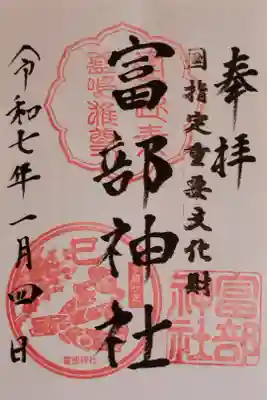 奉拝
国指定重要文化財
富部神社
令和七年一月四日
富部
神社
巳
富部神社